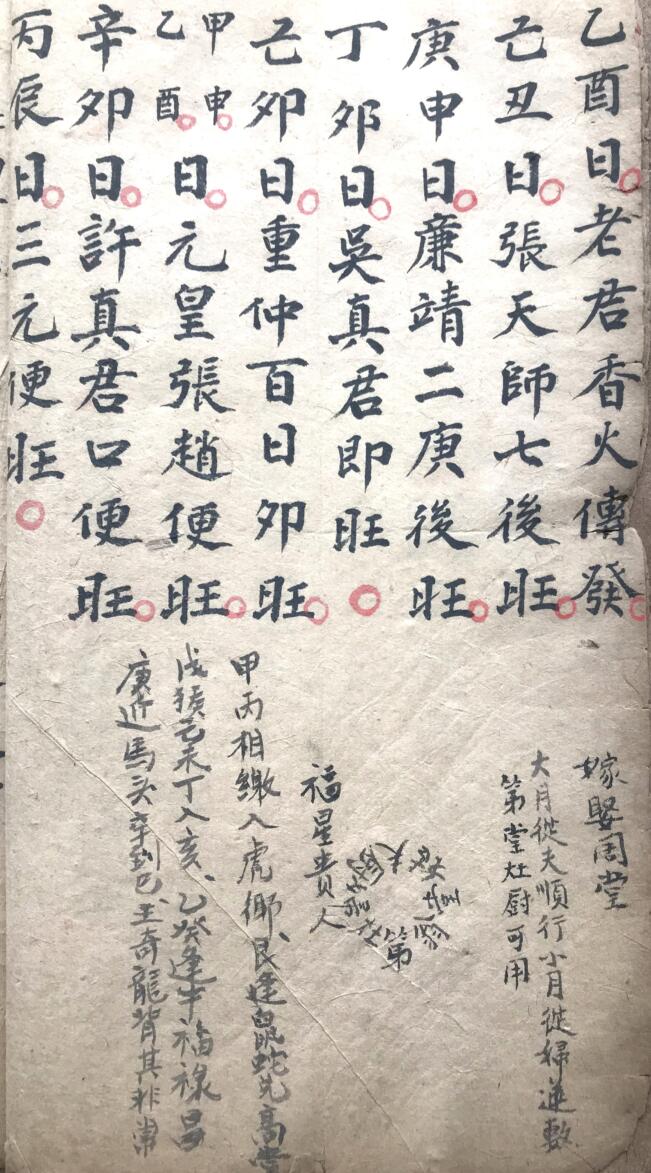 乙酉日老君香火傳發
己丑日張天師七後旺
庚申日廉靖二庚後旺
丁卯日吳真君即旺
己卯日重仲百日卯旺
甲申
乙酉
日元皇張趙便旺
辛卯日許真君口便旺
丙辰日三元便旺
嫁娶周堂
大月從夫順行小月從婦逆數
第堂灶厨可用
福星貴人
甲丙相繳入虎鄉
逢鼠蛇先高堂
戊猴己未丁入亥乙癸逢牛福祿昌
庚近馬头辛到巳壬奇龍背其非常